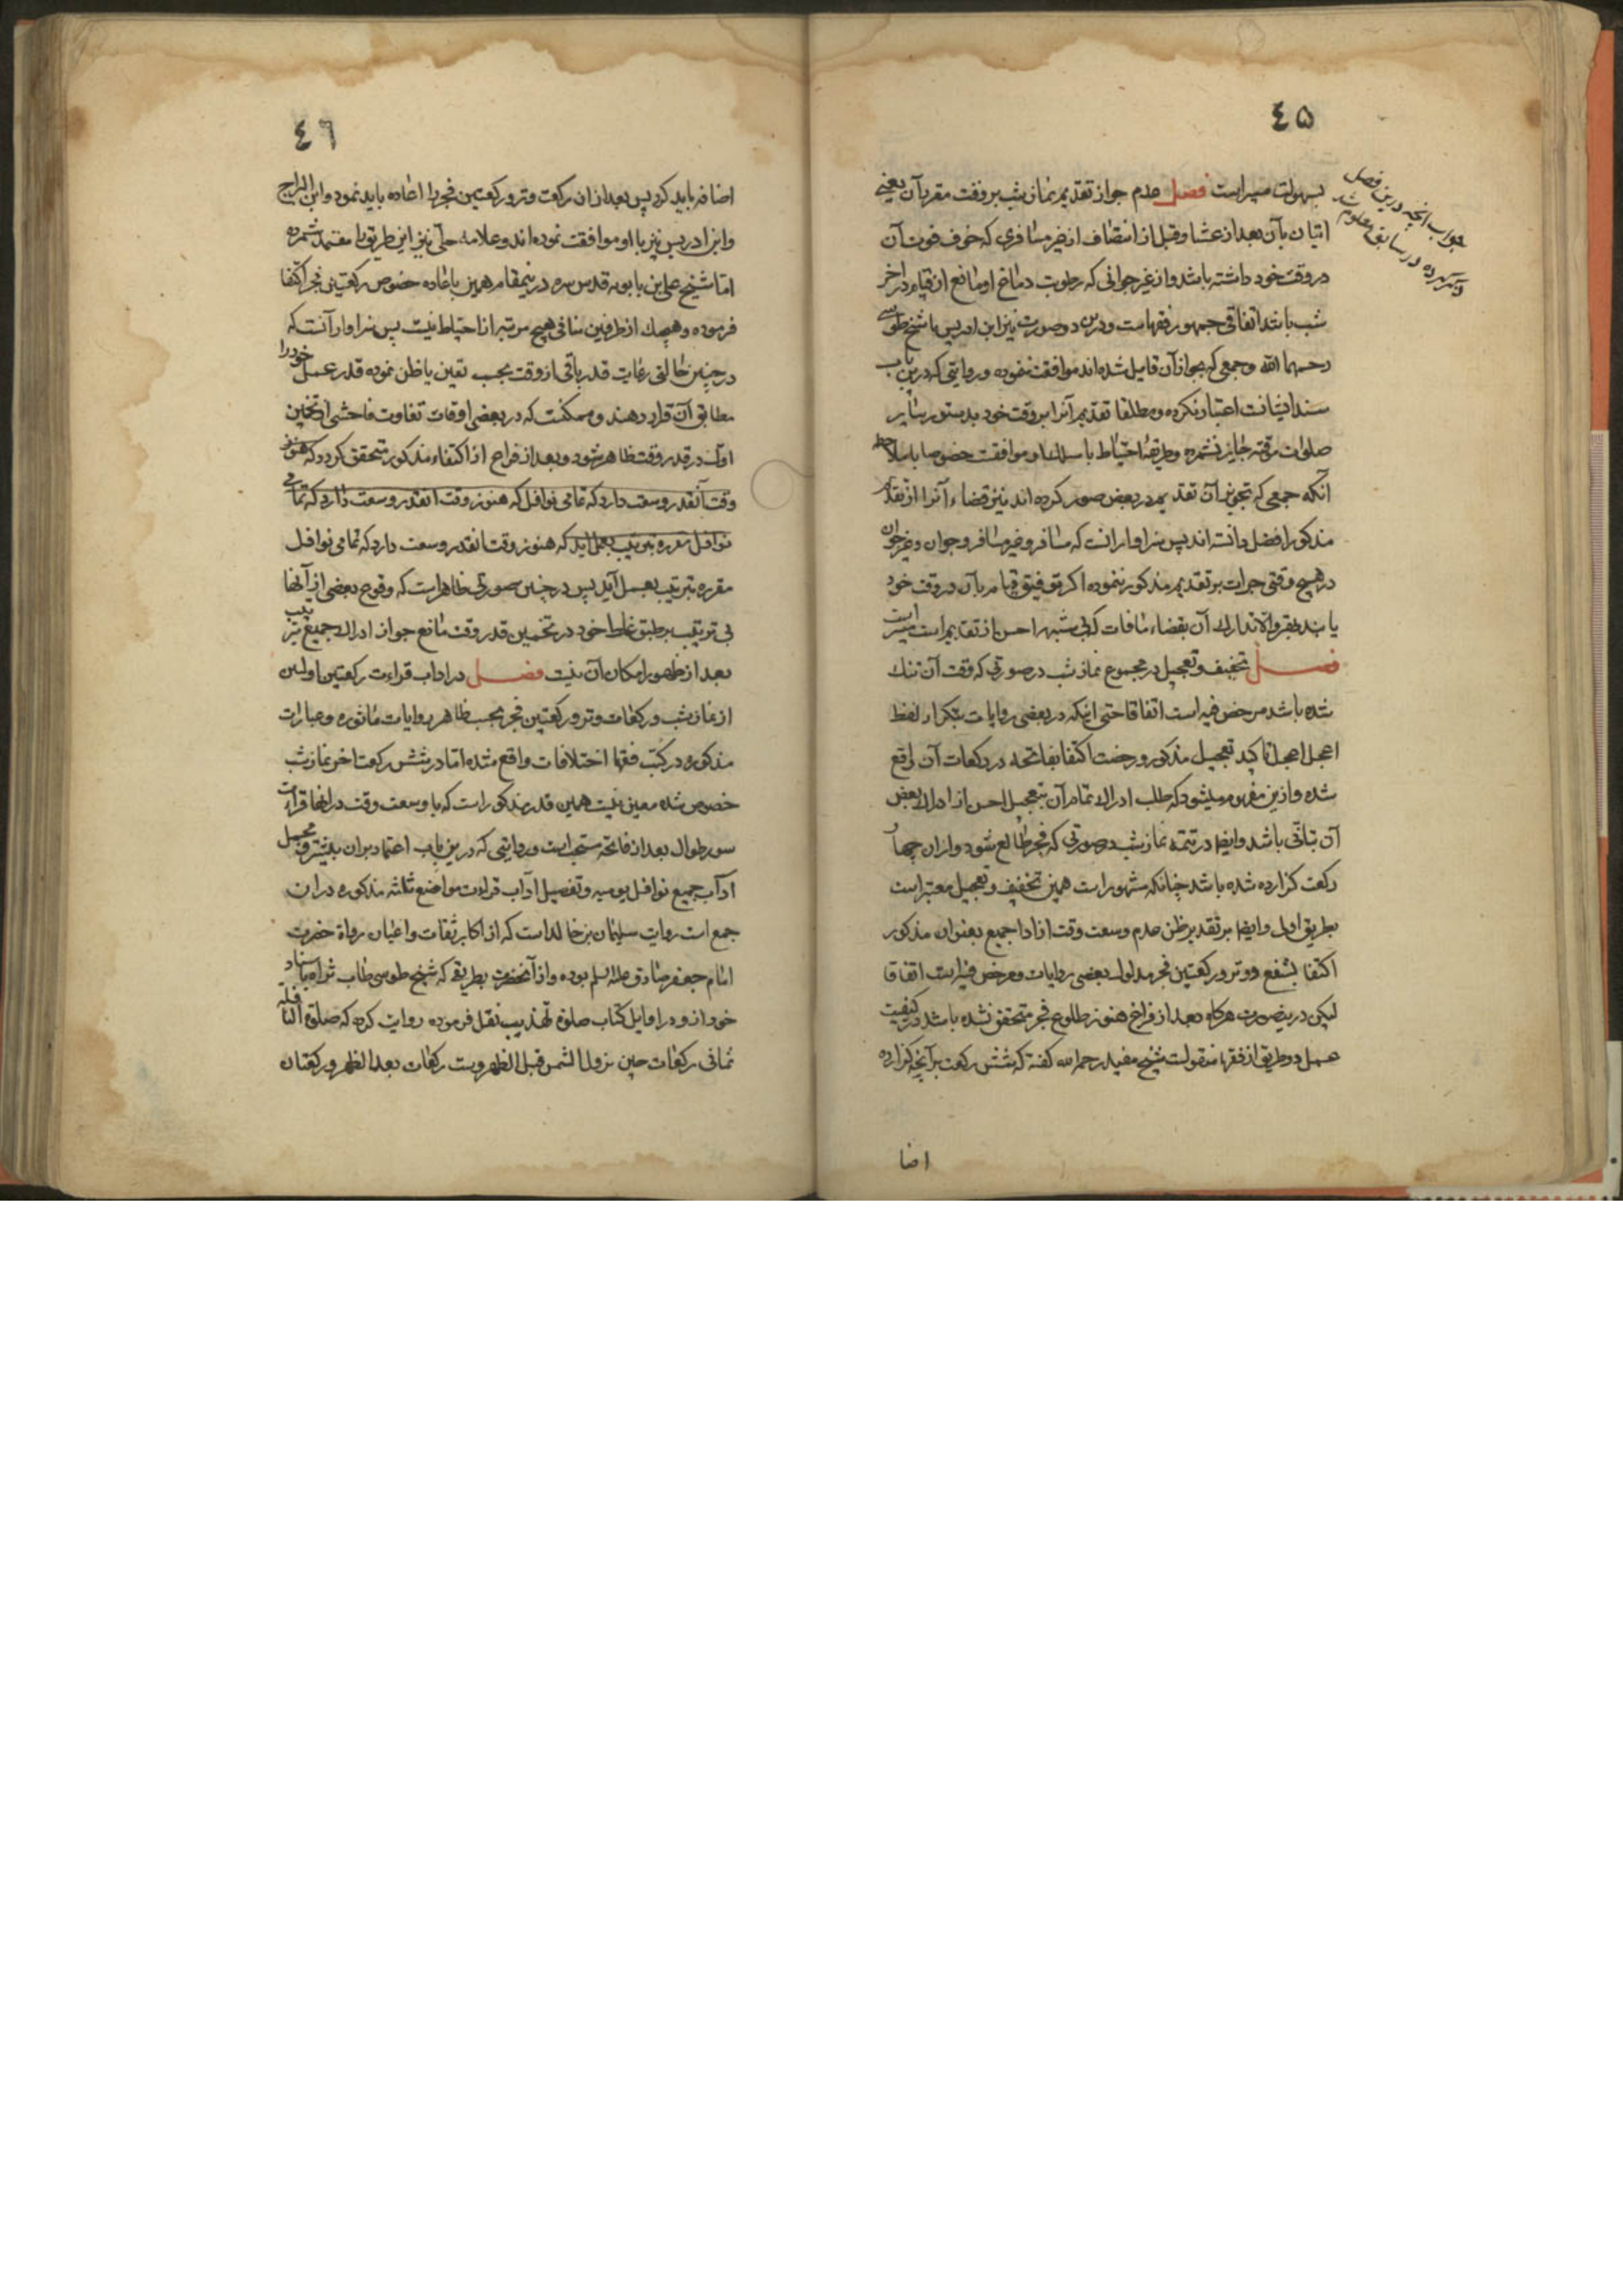 ٤۵
بسهولت میسر است فصل عدم جواز تقدیم نماز شب بر وقت مقرر آن یعنی
اتیان بآن بعد از عشا و قبل از انتصاف از غیر مسافری که خوف فوت آن
در وقت خود داشته باشد و از غیر جوانی که رطوبت دماغ او مانع از قیام در آخر
شب باشد اتفاقی جمهور فقهاست و درین دو صورت نیز ابن ادریس با شیخ طوسی
رحمهما الله و جمعی که بجواز آن قایل شده‌اند موافقت ننموده و روایتی که درین باب
سندا فتیانت اعتبار نکرده و مطلقا تقدیم آنرا بر وقت خود بدستور سایر
صلوات موقته جایز نشمرده و طریقه احتیاط با سلاک او موافقت خصوصا با ملاحظه
آنکه جمعی که تجویز آن تقدیم در بعض صور کرده‌اند نیز قضاء آنرا از تقدیم
مذکور افضل دانسته‌اند پس سزاوار انست که مسافر و غیر مسافر و جوان و غیر جوان
در هیچ وقتی جرات بر تقدیم مذکور ننموده اکر توفیق قیام بآن در وقت خود
یابند فقر و الا تدارک آن بقضاء مافات کنی شبهه احسن از تقدیم است میسر است
فصل تخفیف و تعجیل در مجموع نماز شب در صورتی که وقت آن تنک
شده باشد مرخص فیه است اتفاقا حتی اینکه در بعضی روایات بتکرار لفظ
اعجل اعجل تاکید تعجیل مذکور و رخصت اکتفا بفاتحه در رکعات آن واقع
شده و ازین مفهوم میشود که طلب ادراک تمام آن بتعجیل احسن از ادراک بعض
آن بتانّی باشد و ایضا در تتمه نماز شب در صورتی که فجر طالع شود و از ان چهار
رکعت کزارده شده باشد چنانکه مشهور است همین تخفیف و تعجیل معتبر است
بطریق اول و ایضا بر تقدیر ظن عدم وسعت وقت از ادا جمیع بعنوان مذکور
اکتفا بشفع و وتر و رکعتین فجر مدلول بعضی روایات و مرخص فیه است اتفاقا
لیکن درینصورت هرکاه بعد از فراغ هنوز طلوع فجر متحقق نشده باشد در کیفیت
عمل دو طریق از فقها منقولست شیخ مفید رحمه الله کفته که شش رکعت بر آنچه کزارده
اضا
جواب آنچه درین فصل
در سابق معلوم شد
٤٦
اضافه باید کرد پس بعد از ان رکعت وتر و رکعتین فجر را اعاده باید نمود و ابن البراج
و ابن ادریس نیز با او موافقت نموده‌اند و علامه حلّی نیز این طریق را معتمد شمرده
اما شیخ علی بن بابویه قدس سره درینمقام همین باعاده خصوص رکعتین فجر اکتفا
فرموده و هیچیک از طرفین منافی هیچ مرتبه از احتیاط نیست پس سزاوار آنست که
در چنین حالتی رعایت قدر باقی از وقت بحسب تعین یا ظن نموده قدر عمل خود را
مطابق آن قرار دهند و ممکنست که در بعضی اوقات تفاوت فاحشی از تخمین
اول در قدر وقت ظاهر شود و بعد از فراغ از اکتفاء مذکور متحقق کردد که هنوز
وقت آنقدر وسعت دارد که تمامی نوافل که هنوز وقت انقدر وسعت دارد که تمامی
نوافل مقرره بترتیب بعمل اید که هنوز وقت انقدر وسعت دارد که تمامی نوافل
مقرره بترتیب بعمل آید پس در چنین صورتی ظاهر است که وقوع بعضی از آنها
بی ترتیب بر طبق غلط خود در تخمین قدر وقت مانع جواز ادراک جمیع بترتیب
بعد از ظهور امکان آن نیست فصل در اداب قراءت رکعتین اولین
از نماز شب و رکعات وتر و رکعتین فجر بحسب ظاهر روایات ماثوره و عبارات
مذکوره در کتب فقها اختلافات واقع شده اما در شش رکعت اخر نماز شب
خصوص شده معین نیست همین قدر مذکور است که با وسعت وقت در انها قراءت
سور طوال بعد از فاتحه مستحب است و روایتی که درین باب اعتماد بران بیشتر و مجمل
آداب جمیع نوافل یومیه و تفصیل آداب قراءت مواضع ثلثه مذکوره در ان
جمع است روایت سلیمان بن خالد است که از اکابر ثقات و اعیان رواة حضرت
امام جعفر صادق علیه السلم بوده و از آنحضرت بطریقی که شیخ طوسی طاب ثراه باسناد
خود از و در اوایل کتاب صلوة تهذیب نقل فرموده روایت کرده که صلوة النافلة
ثمانی رکعات حین تزول الشمس قبل الظهر و ست رکعات بعد الظهر و رکعتان